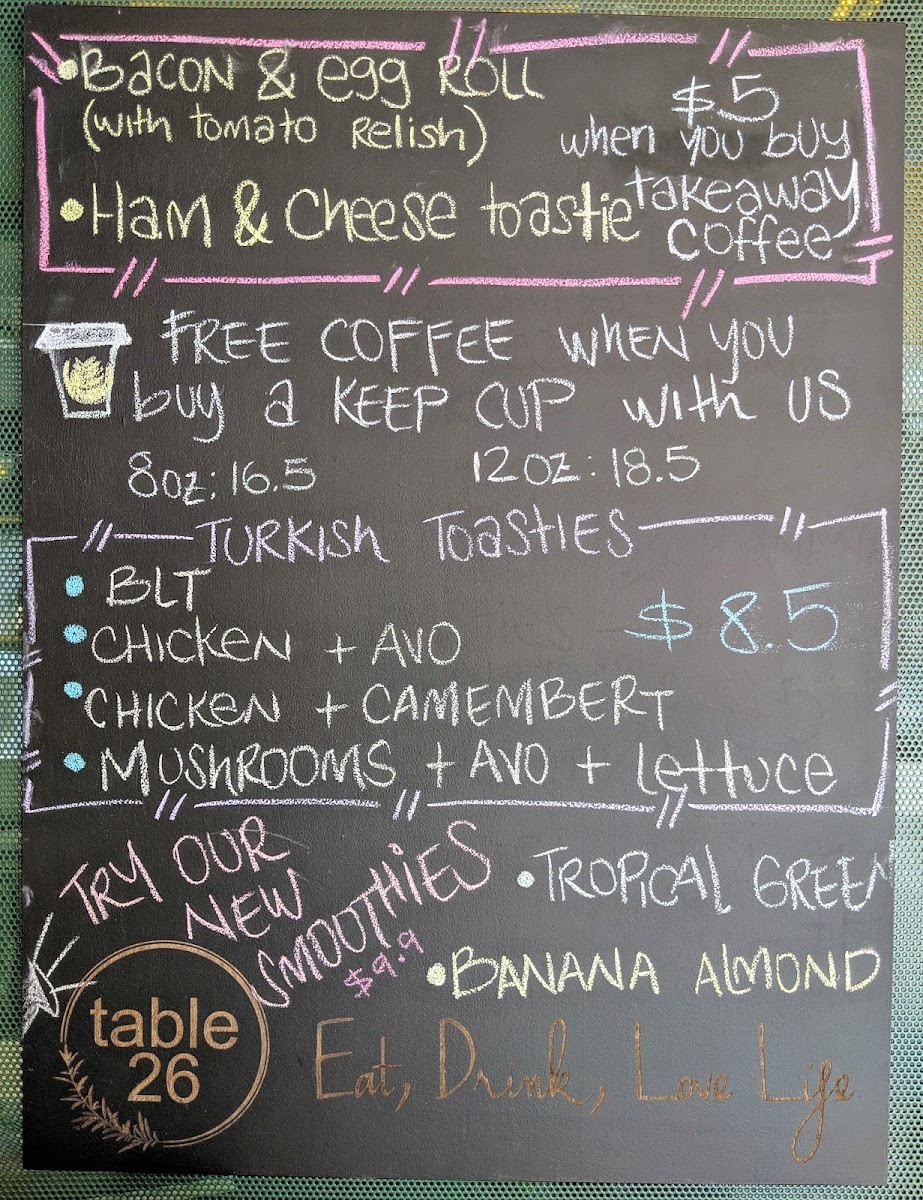 •Bacon & egg Roll
(with tomato Relish)
•Ham & Cheese toastie
$5
when you buy
takeaway
coffee
FREE COFFEE WHEN YOU
buy a KEEP CUP with US
8oz: 16.5 12oz: 18.5
TURKISH TOASTIES
• BLT
• CHICKEN + AVO
• CHICKEN + CAMEMBERT
• MUSHROOMS + AVO + Lettuce
$8.5
TRY OUR
NEW
SMOOTHIES
$9.9
•TROPICAL GREEN
•BANANA ALMOND
table
26
Eat, Drink, Love Life